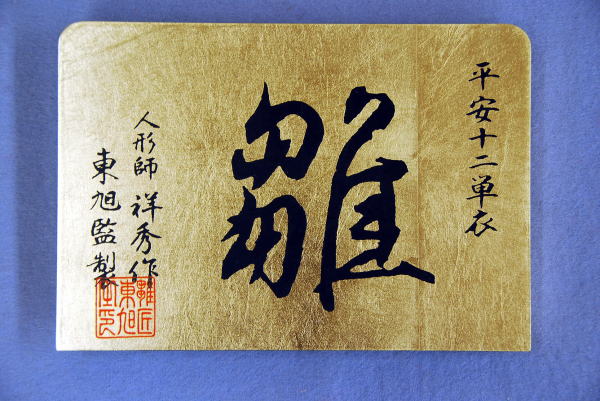 平安十二単衣
雛
人形師 祥秀作
東旭監製
雛匠
東旭
之印